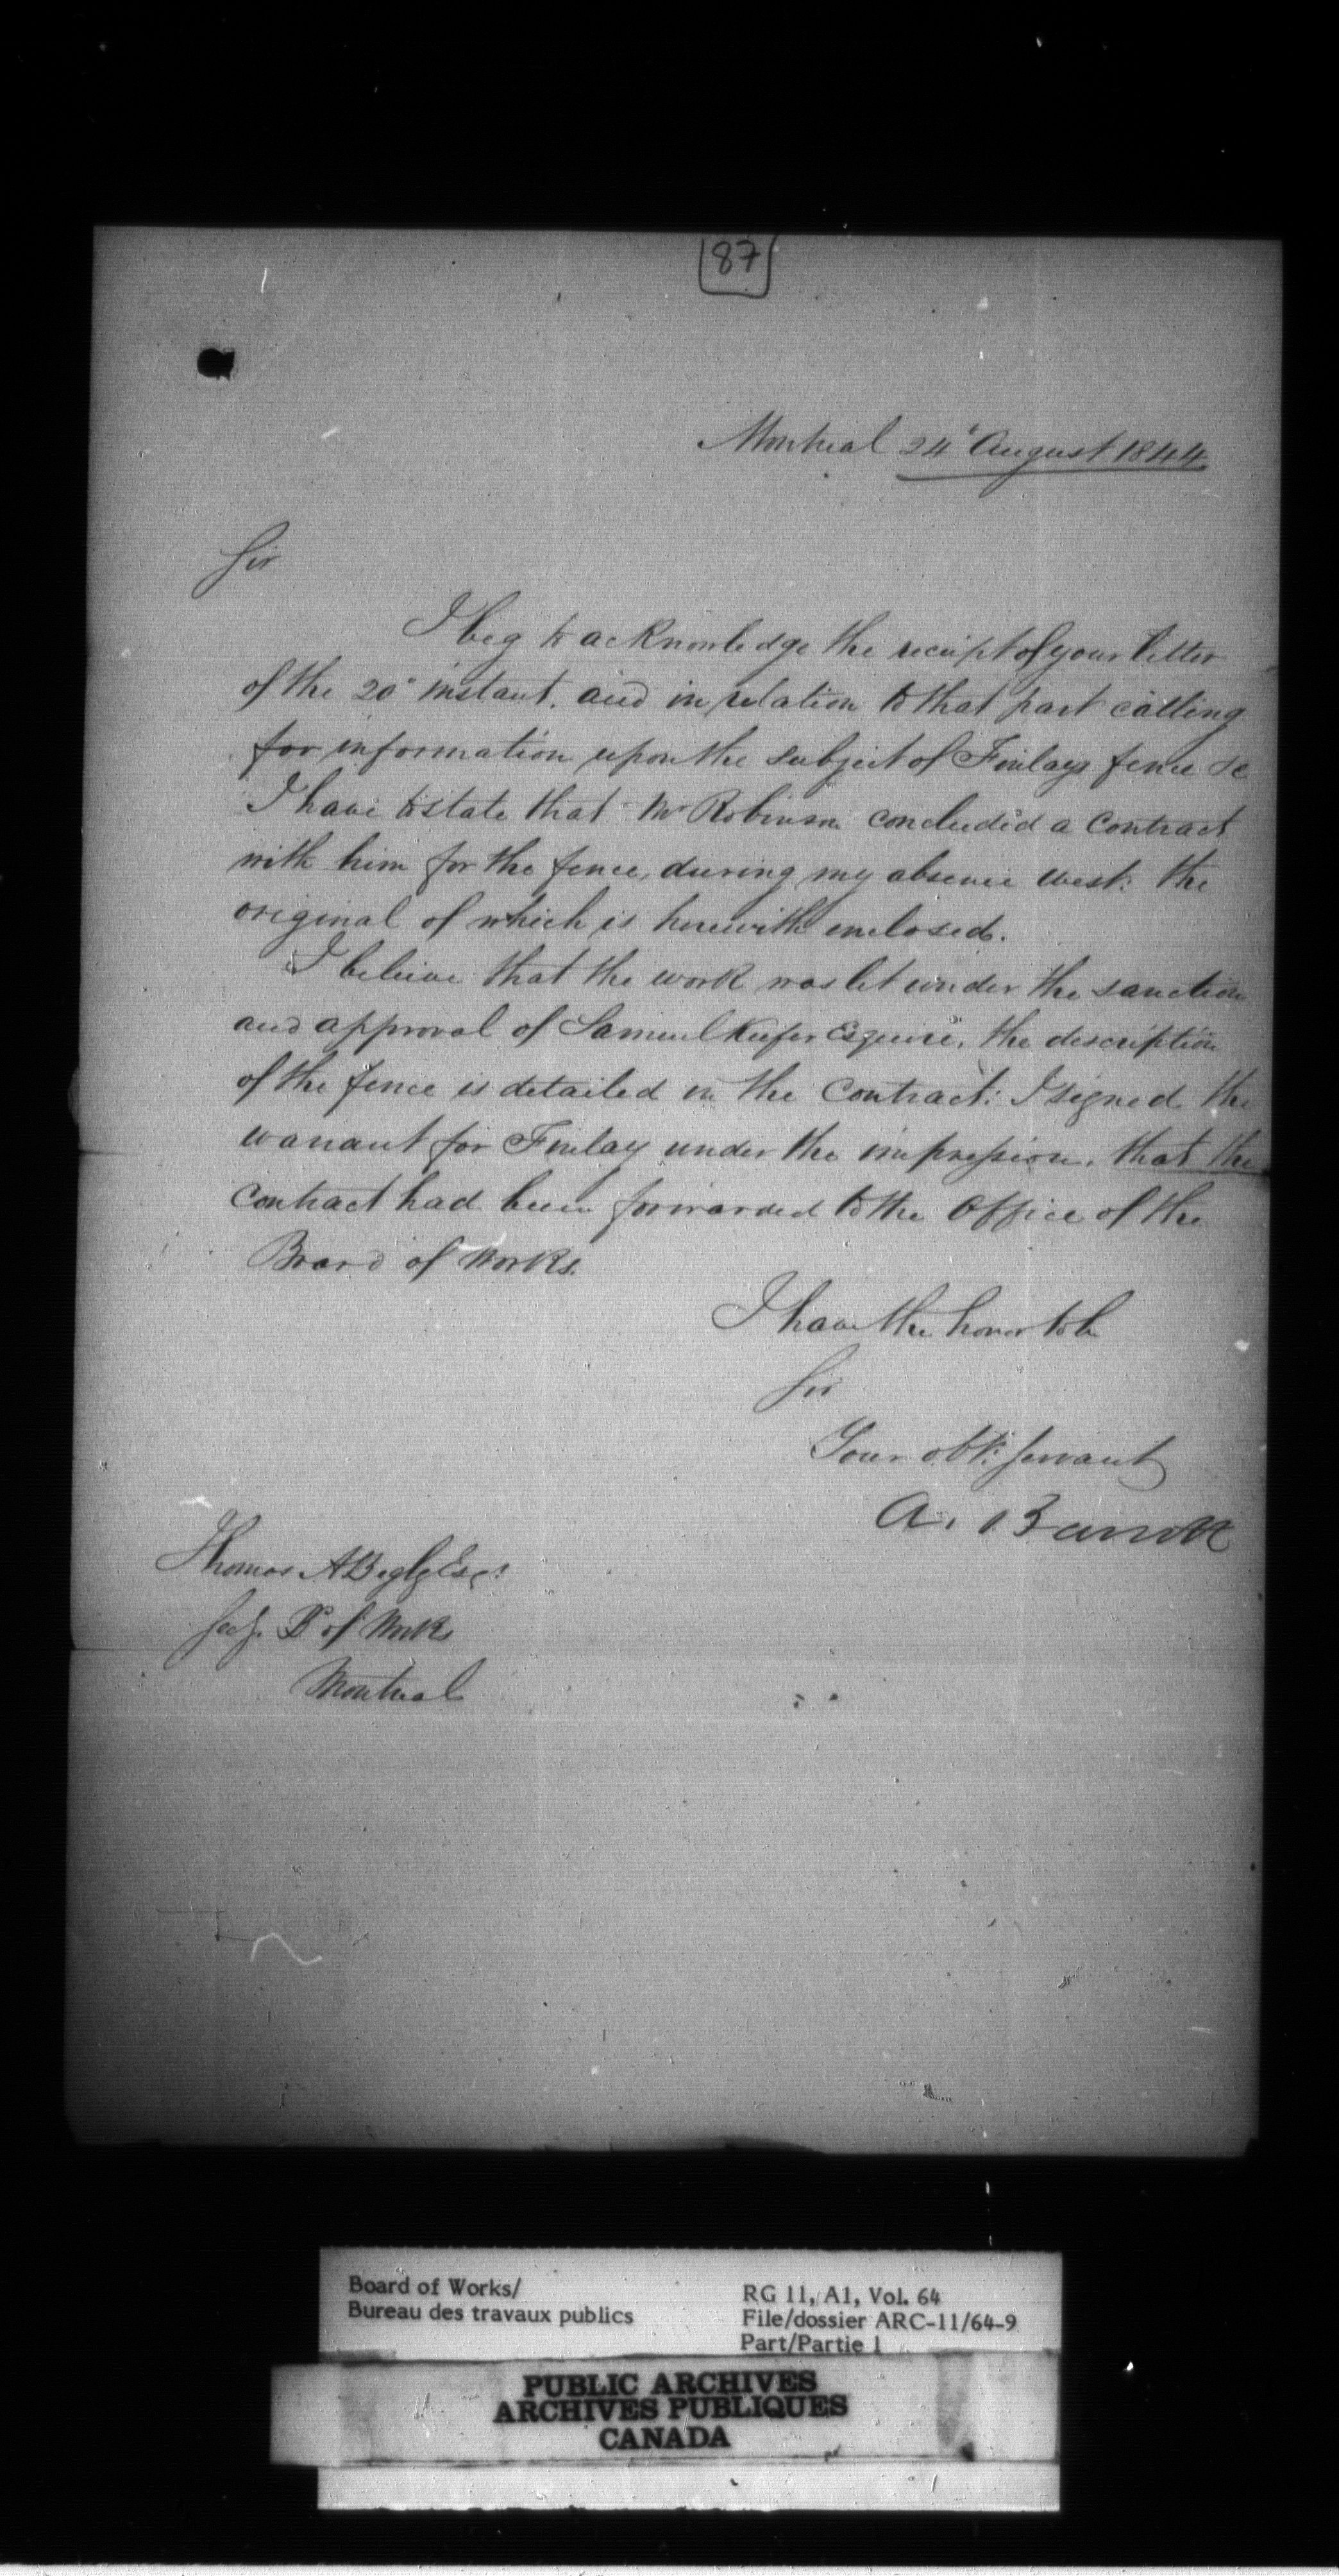 87
Montreal 24° August 1844
Sir
I beg to acknowledge the receipt of your letter
of the 20° instant, and in relation to that part calling
for information upon the subject of Finlays fence &c
I have to state that Mr Robinson concluded a contract
with him for the fence, during my absence west: the
original of which is herewith enclosed.
I beleive that the work was let under the sanction
and approval of Samuel Keefer Esquire, the description
of the fence is detailed in the contract: I signed the
warrant for Finlay under the impression, that the
contract had been forwarded to the Office of the
Board of Works.
I have the honor to be
Sir
Your obt: servant
A. Barrett
Thomas A Begly Esq:
Secy. Bd of Works
Montreal
Board of Works/
Bureau des travaux publics
RG 11, A1, Vol. 64
File/dossier ARC-11/64-9
Part/Partie 1
PUBLIC ARCHIVES
ARCHIVES PUBLIQUES
CANADA